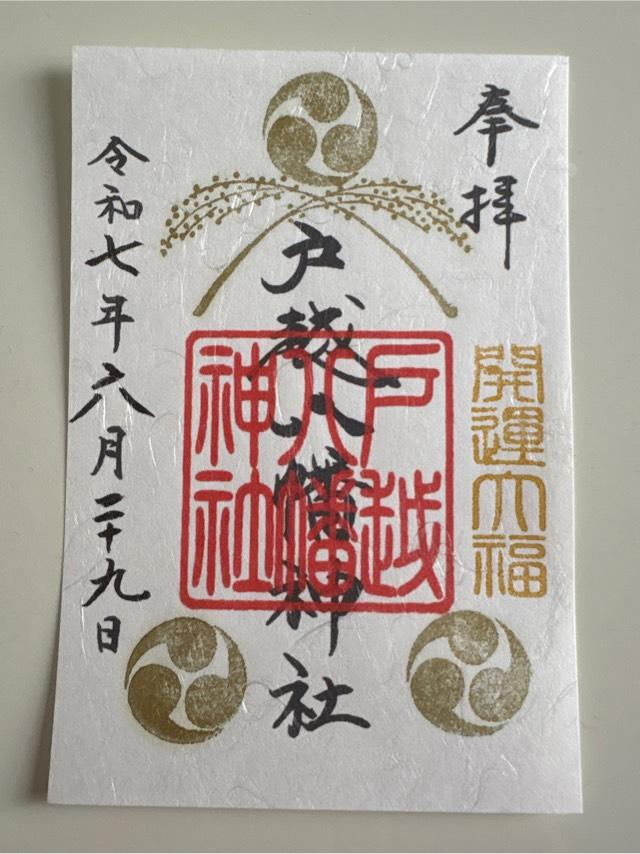 奉拝
開運大福
戸越八幡神社
戸越八幡神社
令和七年六月二十九日